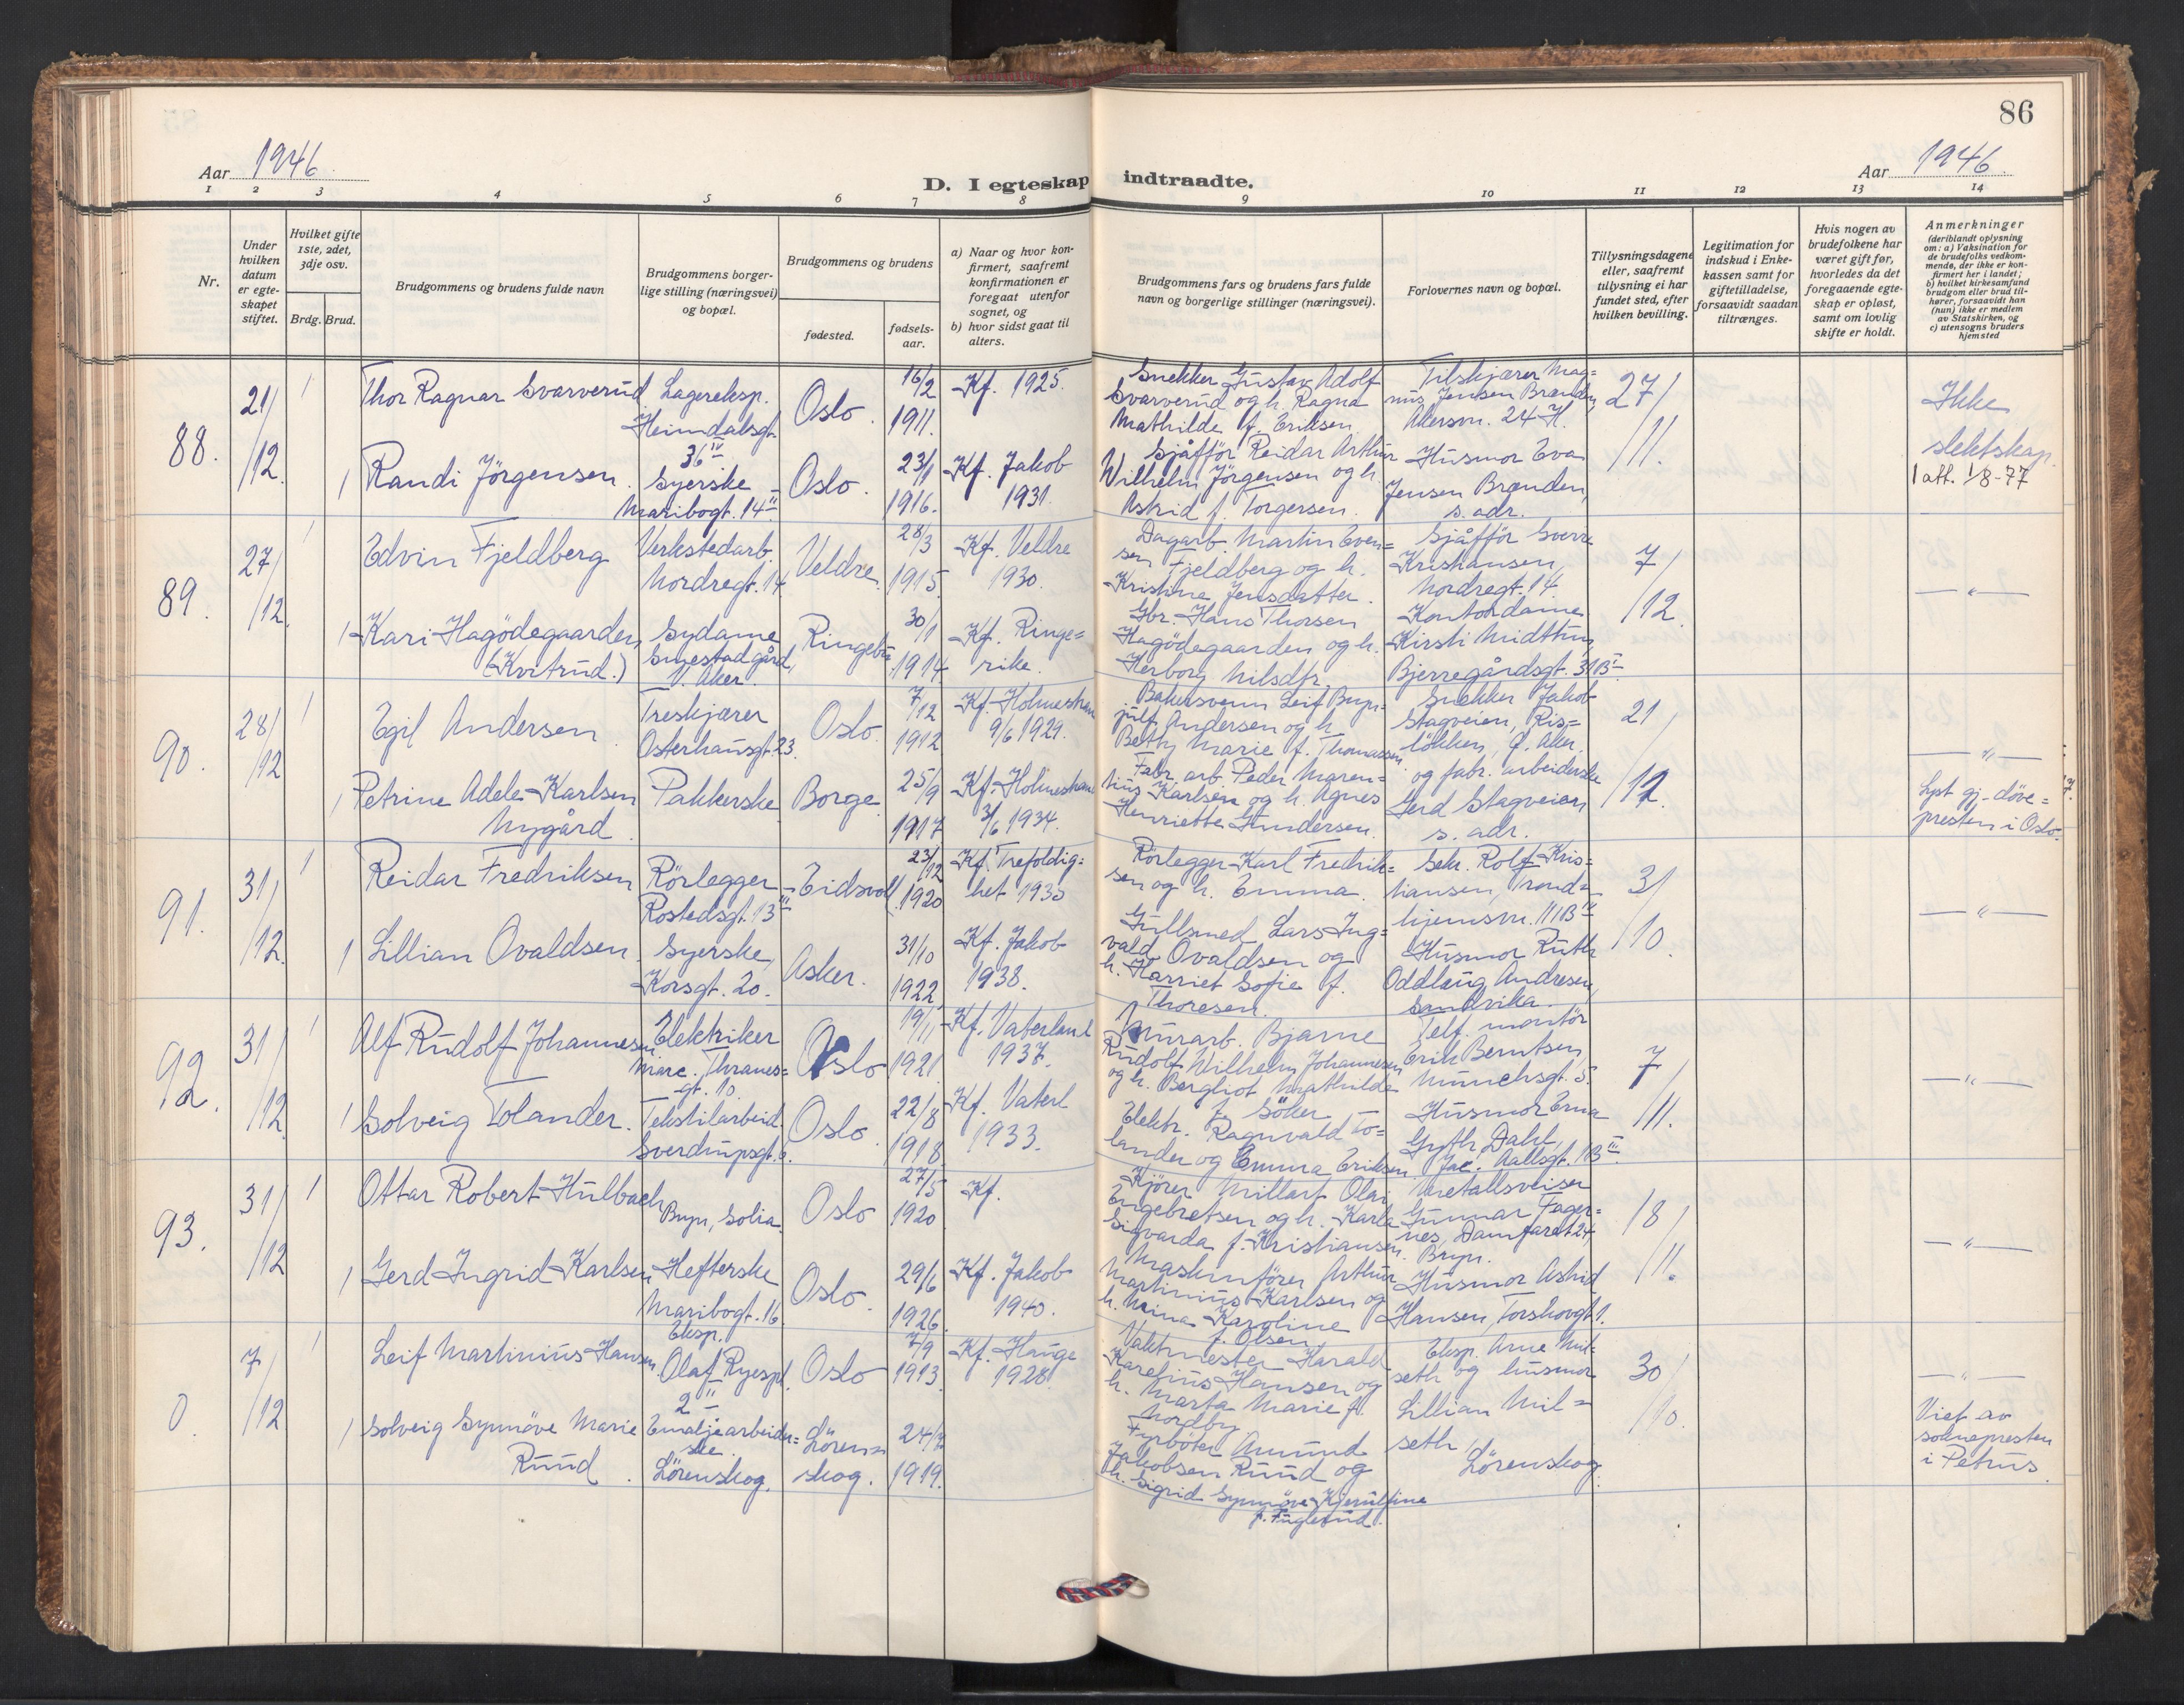 86
Aar 1946.
Aar 1946.
D. I egteskap indtraadte.
1 2 3 4 5 6 7 8 9 10 11 12 13 14
Nr.
Under hvilken datum er egteskapet stiftet.
Hvilket gifte 1ste, 2det, 3dje osv.
Brdg. Brud.
Brudgommens og brudens fulde navn
Brudgommens borgerlige stilling (næringsvei) og bopæl.
Brudgommens og brudens
fødested.
fødselsaar.
a) Naar og hvor konfirmert, saafremt konfirmationen er foregaat utenfor sognet, og
b) hvor sidst gaat til alters.
Brudgommens fars og brudens fars fulde navn og borgerlige stillinger (næringsvei).
Forlovernes navn og bopæl.
Tillysningsdagene eller, saafremt tillysning ei har fundet sted, efter hvilken bevilling.
Legitimation for indskud i Enkekassen samt for giftetilladelse, forsaavidt saadan tiltrænges.
Hvis nogen av brudefolkene har været gift før, hvorledes da det foregaaende egteskap er opløst, samt om lovlig skifte er holdt.
Anmerkninger
(deriblandt oplysning om: a) Vaksination for de brudefolks vedkommende, der ikke er konfirmert her i landet; b) hvilket kirkesamfund brudgom eller brud tilhører, forsaavidt han (hun) ikke er medlem av Statskirken, og c) utensogns bruders hjemsted
88.
21/12.
1
Thor Ragnar Svarverud
Lagereksp.
Heimdalsgt.
36 IV
Oslo.
16/2
1911.
Kf. 1925.
Snekker Gustav Adolf
Svarverud og h. Ragna
Mathilde f. Eriksen.
Tilskjærer Mag=
nus Jensen Brænden,
Akersvn. 24 H.
27/11.
Ikke
slektskap.
1 att. 1/8-77
1
Randi Jörgensen.
Syerske
Maribogt. 14 II
Oslo.
23/1
1916.
Kf. Jakob
1931.
Sjåfför Reidar Arthur
Wilhelm Jörgensen og h.
Astrid f. Torgersen.
Husmor Eva
Jensen Brænden,
s. adr.
89.
27/12.
1
Edvin Fjeldberg
Verkstedarb.
Nordregt. 14
Veldre.
28/3
1915.
Kf. Veldre
1930.
Dagarb. Martin Even=
sen Fjeldberg og h.
Kristine Jensdatter.
Sjåfför Sverre
Kristiansen,
Nordregt. 14
7/12.
— " —
1
Kari Hagödegaarden
(Kvitrud.)
Sydame
Smestad gård,
V. Aker.
Ringebu
30/1
1914
Kf. Ringe=
rike.
Gbr. Hans Thorsen
Hagödegaarden og h.
Herborg Nilsdtr.
Kontordame
Kirsti Midttun,
Bjerregårdsgt. 31 B I
90.
28/12
1
Egil Andersen.
Treskjærer
Osterhausgt. 23.
Oslo.
7/12
1912
Kf. Holmestrand
9/6 1929.
Bakersvenn Leif Bryn=
julf Andersen og h.
Betty Marie f. Thomassen.
Snekker Jakob
Stagveien, Ris=
lökken, Ö. Aker.
21/12.
— " —
Lyst gj. döve=
presten i Oslo.
1
Petrine Adele Karlsen
Nygård.
Pakkerske
Borge
25/9
1917
Kf. Holmestrand
3/6 1934.
Fabr. arb. Peder Maren=
tius Karlsen og h. Agnes
Henriette Gundersen.
og fabr. arbeiderske
Gerd Stagveien
s. adr.
91.
31/12.
1
Reidar Fredriksen
Rörlegger
Rostedsgt. 13 III
Eidsvoll
23/12
1920
Kf. Trefoldig=
het 1935
Rörlegger Karl Fredrik=
sen og h. Emma.
Sekr. Rolf Kris=
tiansen, Trond=
hjemsvn. 111 B IV
3/10.
— " —
1
Lillian Ovaldsen.
Syerske,
Korsgt. 20.
Asker.
31/10
1922
Kf. Jakob
1938.
Gullsmed Lars Ing=
vald Ovaldsen og
h. Harriet Sofie f.
Thoresen.
Husmor Ruth
Oddlaug Andresen,
Sandvika.
92.
31/12.
1
Alf Rudolf Johannesen
Elektriker
Marc. Thranes=
gt. 10.
Oslo
19/11
1921.
Kf. Vaterland
1937.
Murarb. Bjarne
Rudolf Wilhelm Johannesen
og h. Bergliot Mathilde
f. Söker
Telf. montör
Erik Berntsen,
Munchsgt. 5.
7/11.
— " —
1
Solveig Tolander.
Tekstilarbeid.
Sverdrupsgt. 6.
Oslo.
22/8
1918.
Kf. Vaterl
1933.
Elektr. Ragnvald To=
lander og Emma Eriksen
Husmor Erna
Gyth Dahl,
Jac. Aallsgt. 1 B III
93.
31/12
1
Ottar Robert Hulbach
Bryn, Solia.
Oslo
27/5
1920
Kf.
Kjörer Millart Olai
Engebretsen og h. Karla
Sigvarda f. Kristiansen.
Metallsveiser
Gunnar Fager=
nes, Damfaret 24
Bryn.
18/11.
— " —
1
Gerd Ingrid Karlsen
Hefterske
Maribogt. 16.
Oslo.
29/6
1926.
Kf. Jakob
1940.
Maskinförer Arthur
Martinius Karlsen og
h. Mina Karoline
f. Olsen.
Husmor Astrid
Hansen, Torshovgt 1.
0
7/12
1
Leif Martinius Hansen.
Eksp.
Olaf Ryespl.
2 II
Oslo
7/9
1913.
Kf. Hauge
1928.
Vaktmester Harald
Karelius Hansen og
h. Marta Marie f.
Nordby
Eksp. Arne Mil=
seth og husmor
Lillian Mil=
seth,
Lörenskog.
30/10.
— " —
Viet av
soknepresten
i Petrus.
1
Solveig Synnöve Marie
Ruud.
Emaljearbeider=
ske.
Lörenskog.
Lören=
skog.
1919.
Fyrböter Amund
Jakobsen Ruud og
h. Sigrid Synnöve Kjerulfine
f. Fuglerud.